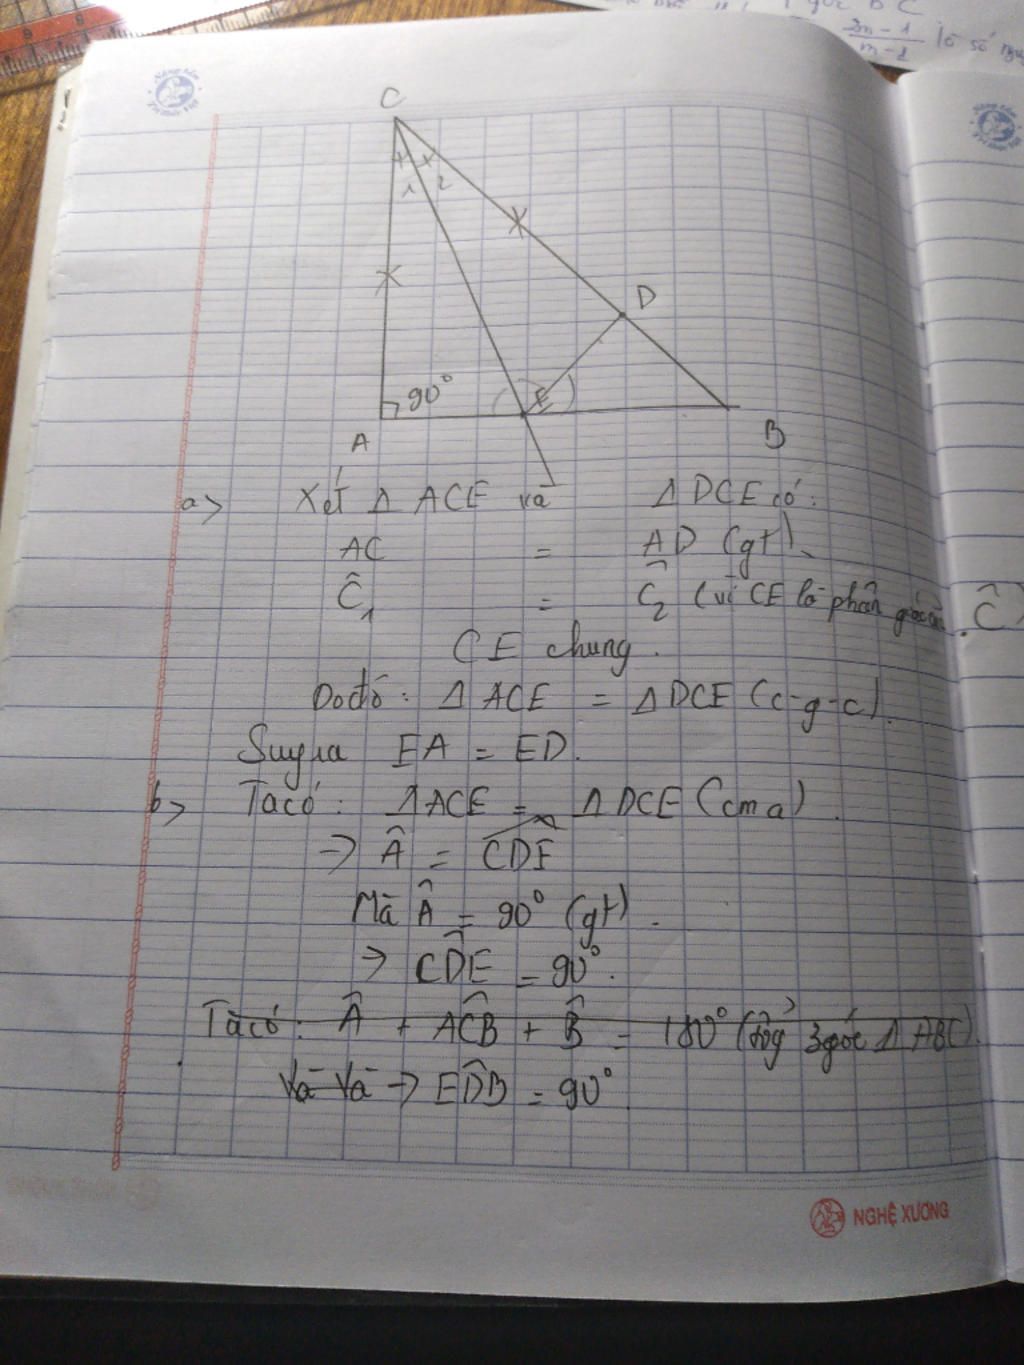 góc BC
2m-1
m-1
là số
Nâng tầm
Tri thức Việt
C
1 2
D
90°
E
A
B
a> Xét Δ ACE và Δ DCE có:
AC = AD (gt)
Ĉ₁ = Ĉ₂ (vì CE là phân giác của Ĉ)
CE chung.
Do đó: Δ ACE = Δ DCE (c-g-c).
Suy ra EA = ED.
b> Ta có: Δ ACE = Δ DCE (cm a).
→ Â = CDE
Mà Â = 90° (gt).
→ CD̂E = 90°.
Ta có: Â + AĈB + B̂ = 180° (tổng 3 góc Δ ABC).
Và Và → ED̂B = 90°.
NGHỆ XƯƠNG